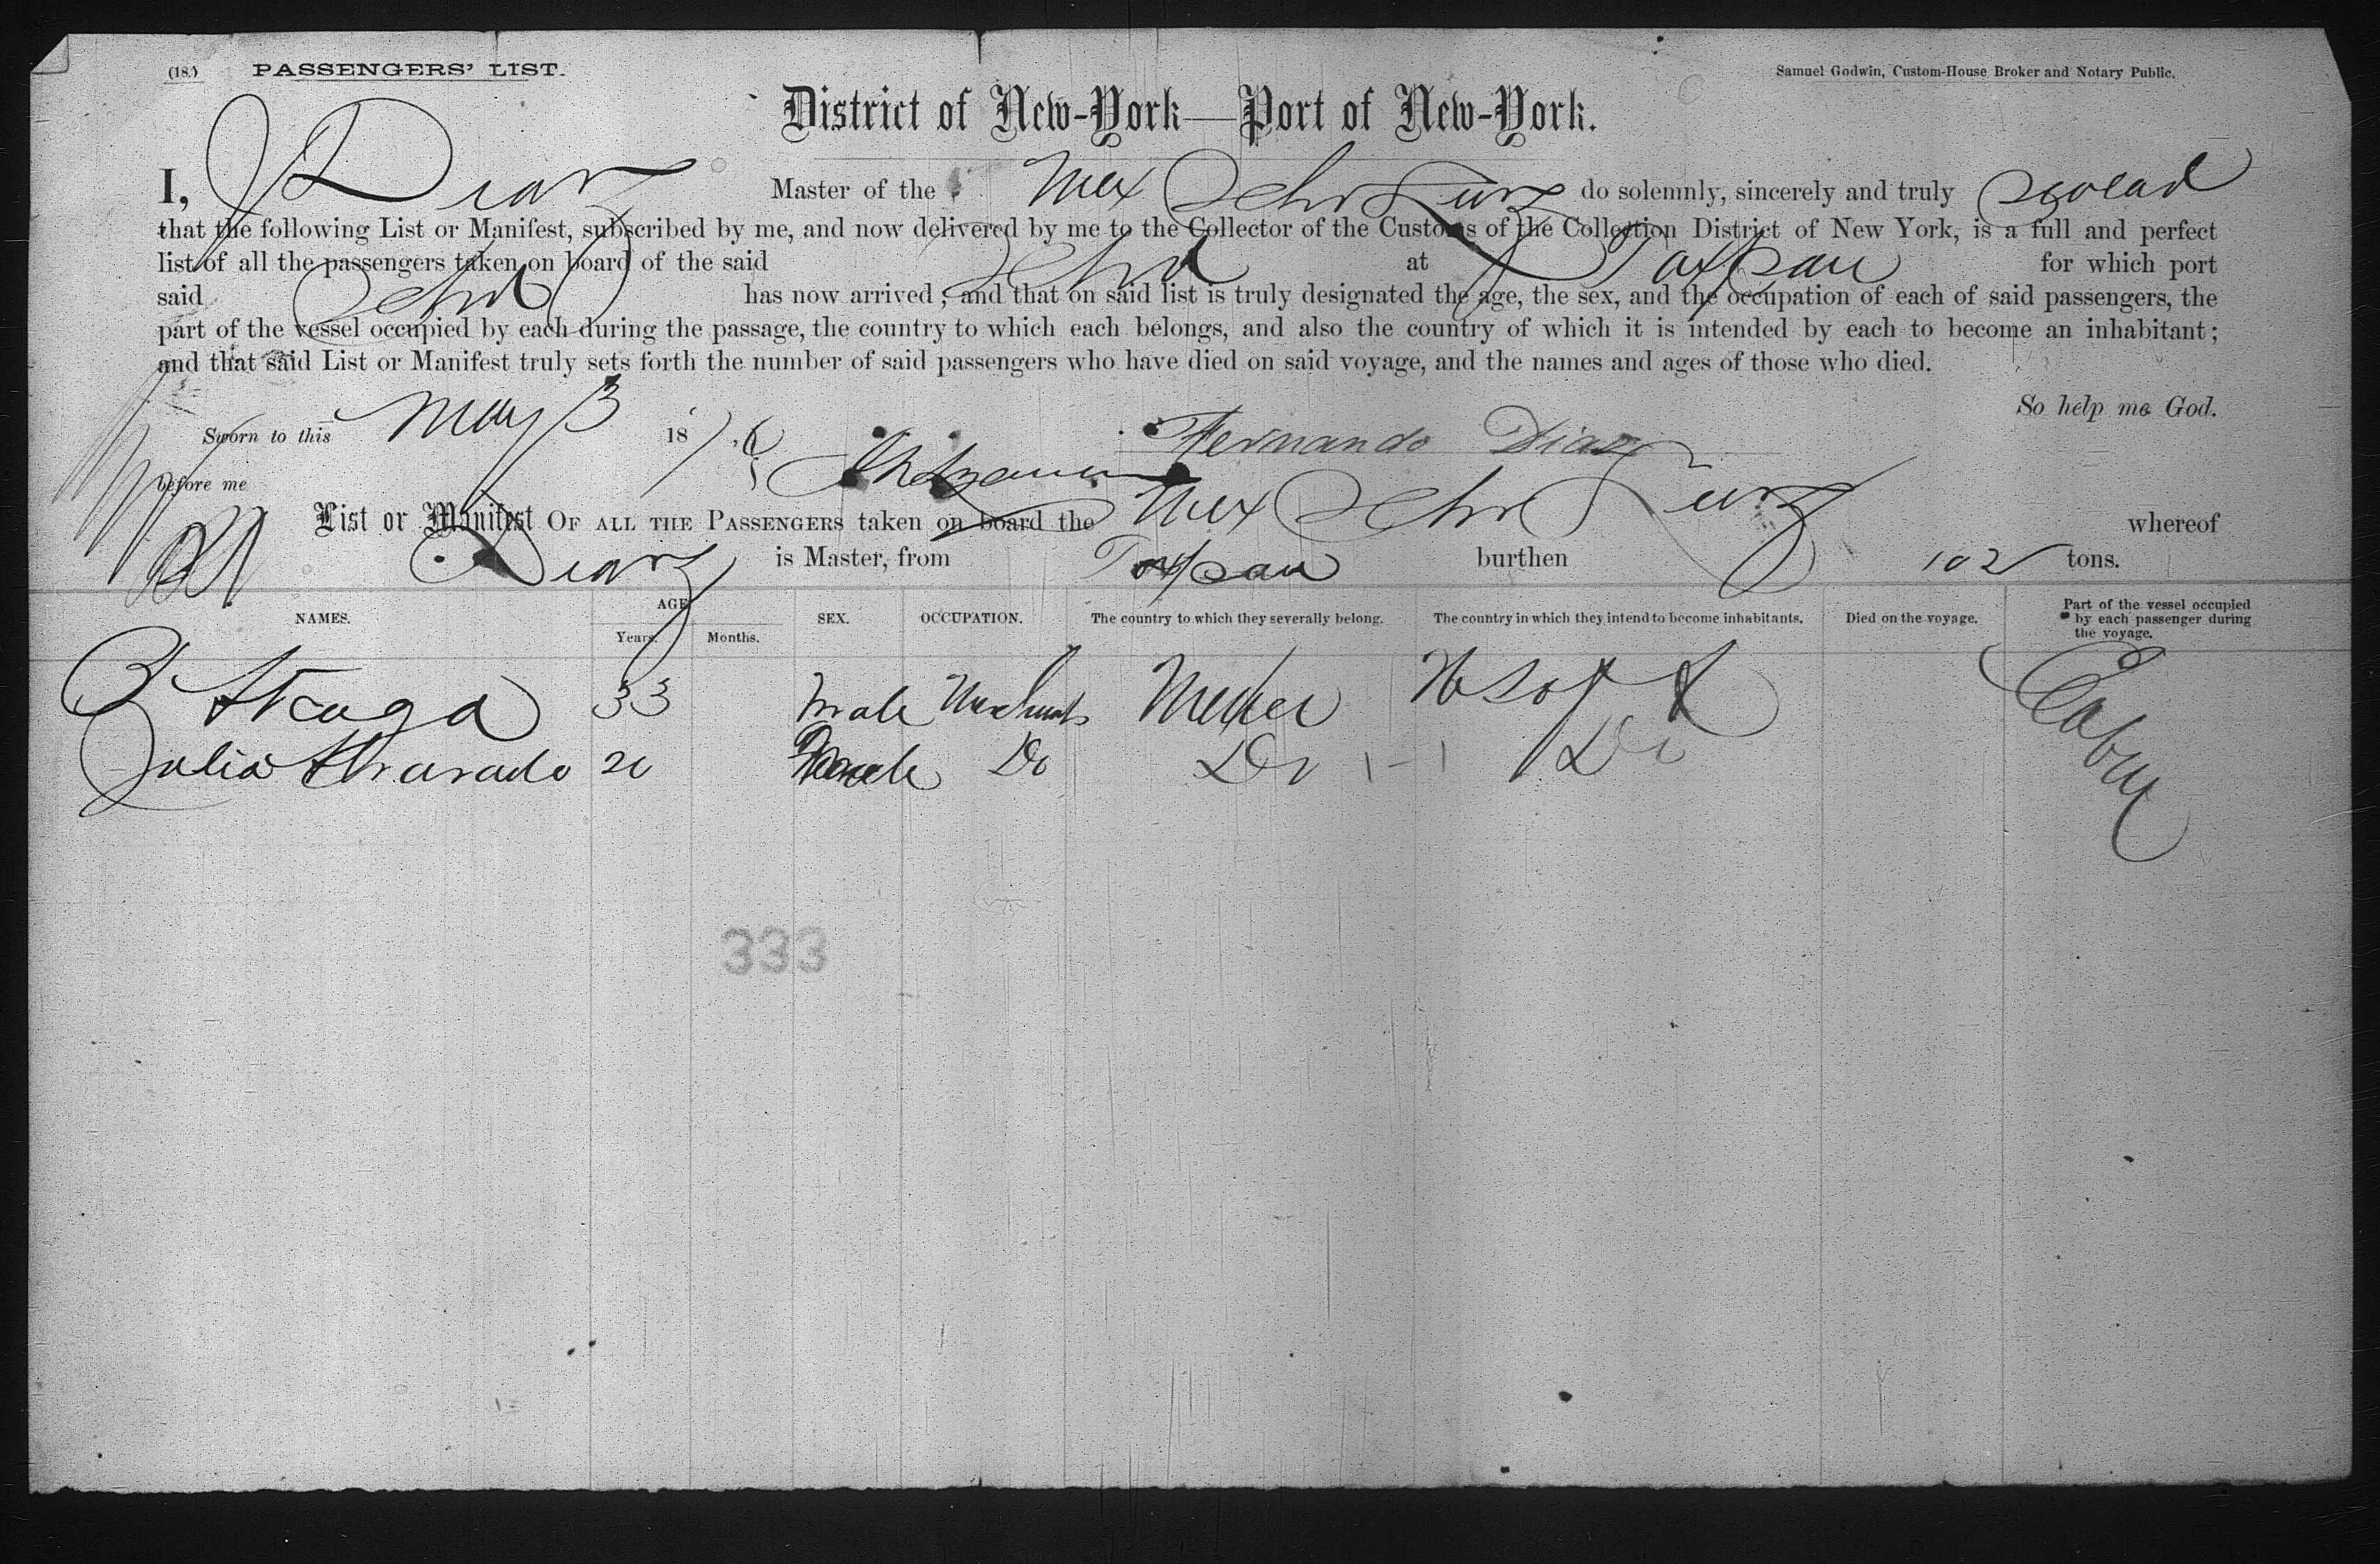 (18.) PASSENGERS' LIST. Samuel Godwin, Custom-House Broker and Notary Public.
District of New-York—Port of New-York.
I, F Diaz Master of the Mex Schr Luz do solemnly, sincerely and truly swear
that the following List or Manifest, subscribed by me, and now delivered by me to the Collector of the Customs of the Collection District of New York, is a full and perfect
list of all the passengers taken on board of the said Schr at Toxpan for which port
said Schr has now arrived; and that on said list is truly designated the age, the sex, and the occupation of each of said passengers, the
part of the vessel occupied by each during the passage, the country to which each belongs, and also the country of which it is intended by each to become an inhabitant;
and that said List or Manifest truly sets forth the number of said passengers who have died on said voyage, and the names and ages of those who died.
So help me God.
Sworn to this May 3 187 Fernando Diaz
before me
List or Manifest OF ALL THE PASSENGERS taken on board the Mex Schr Luz whereof
Diaz is Master, from Toxpan burthen 102 tons.
NAMES. AGE SEX. OCCUPATION. The country to which they severally belong. The country in which they intend to become inhabitants. Died on the voyage. Part of the vessel occupied by each passenger during the voyage.
Years. Months.
33 Male Merchant Mexico U S of A Cabin
Julia Alvarado 20 Female Do Do Do
333